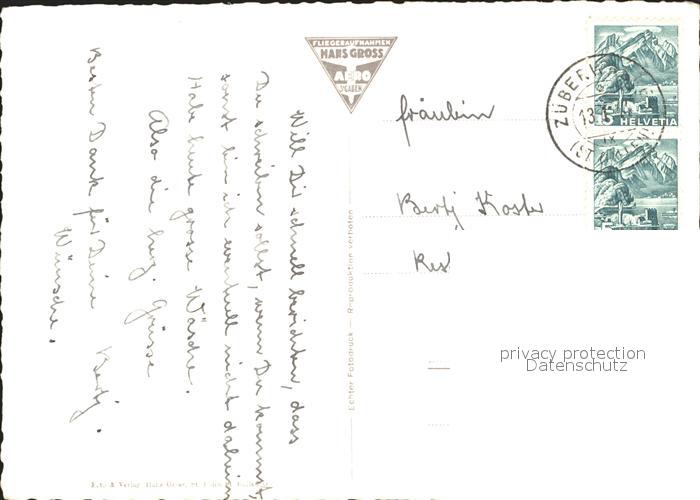 Will Dir schnell berichten, dass
Du schreiben sollst, wenn Du kommst,
sonst bin ich eventuell nicht daheim
Habe heute grosse Wäsche.
Also die herz. Grüsse
Berty.
Besten Dank für Deine
Wünsche.
FLIEGERAUFNAHMEN
HANS GROSS
AERO
ST. GALLEN
Echter Fotodruck — Reproduktion verboten
Foto & Verlag Hans Gross, St. Gallen
Fräulein
Berty Koster
HELVETIA
5
5
13.
privacy protection
Datenschutz